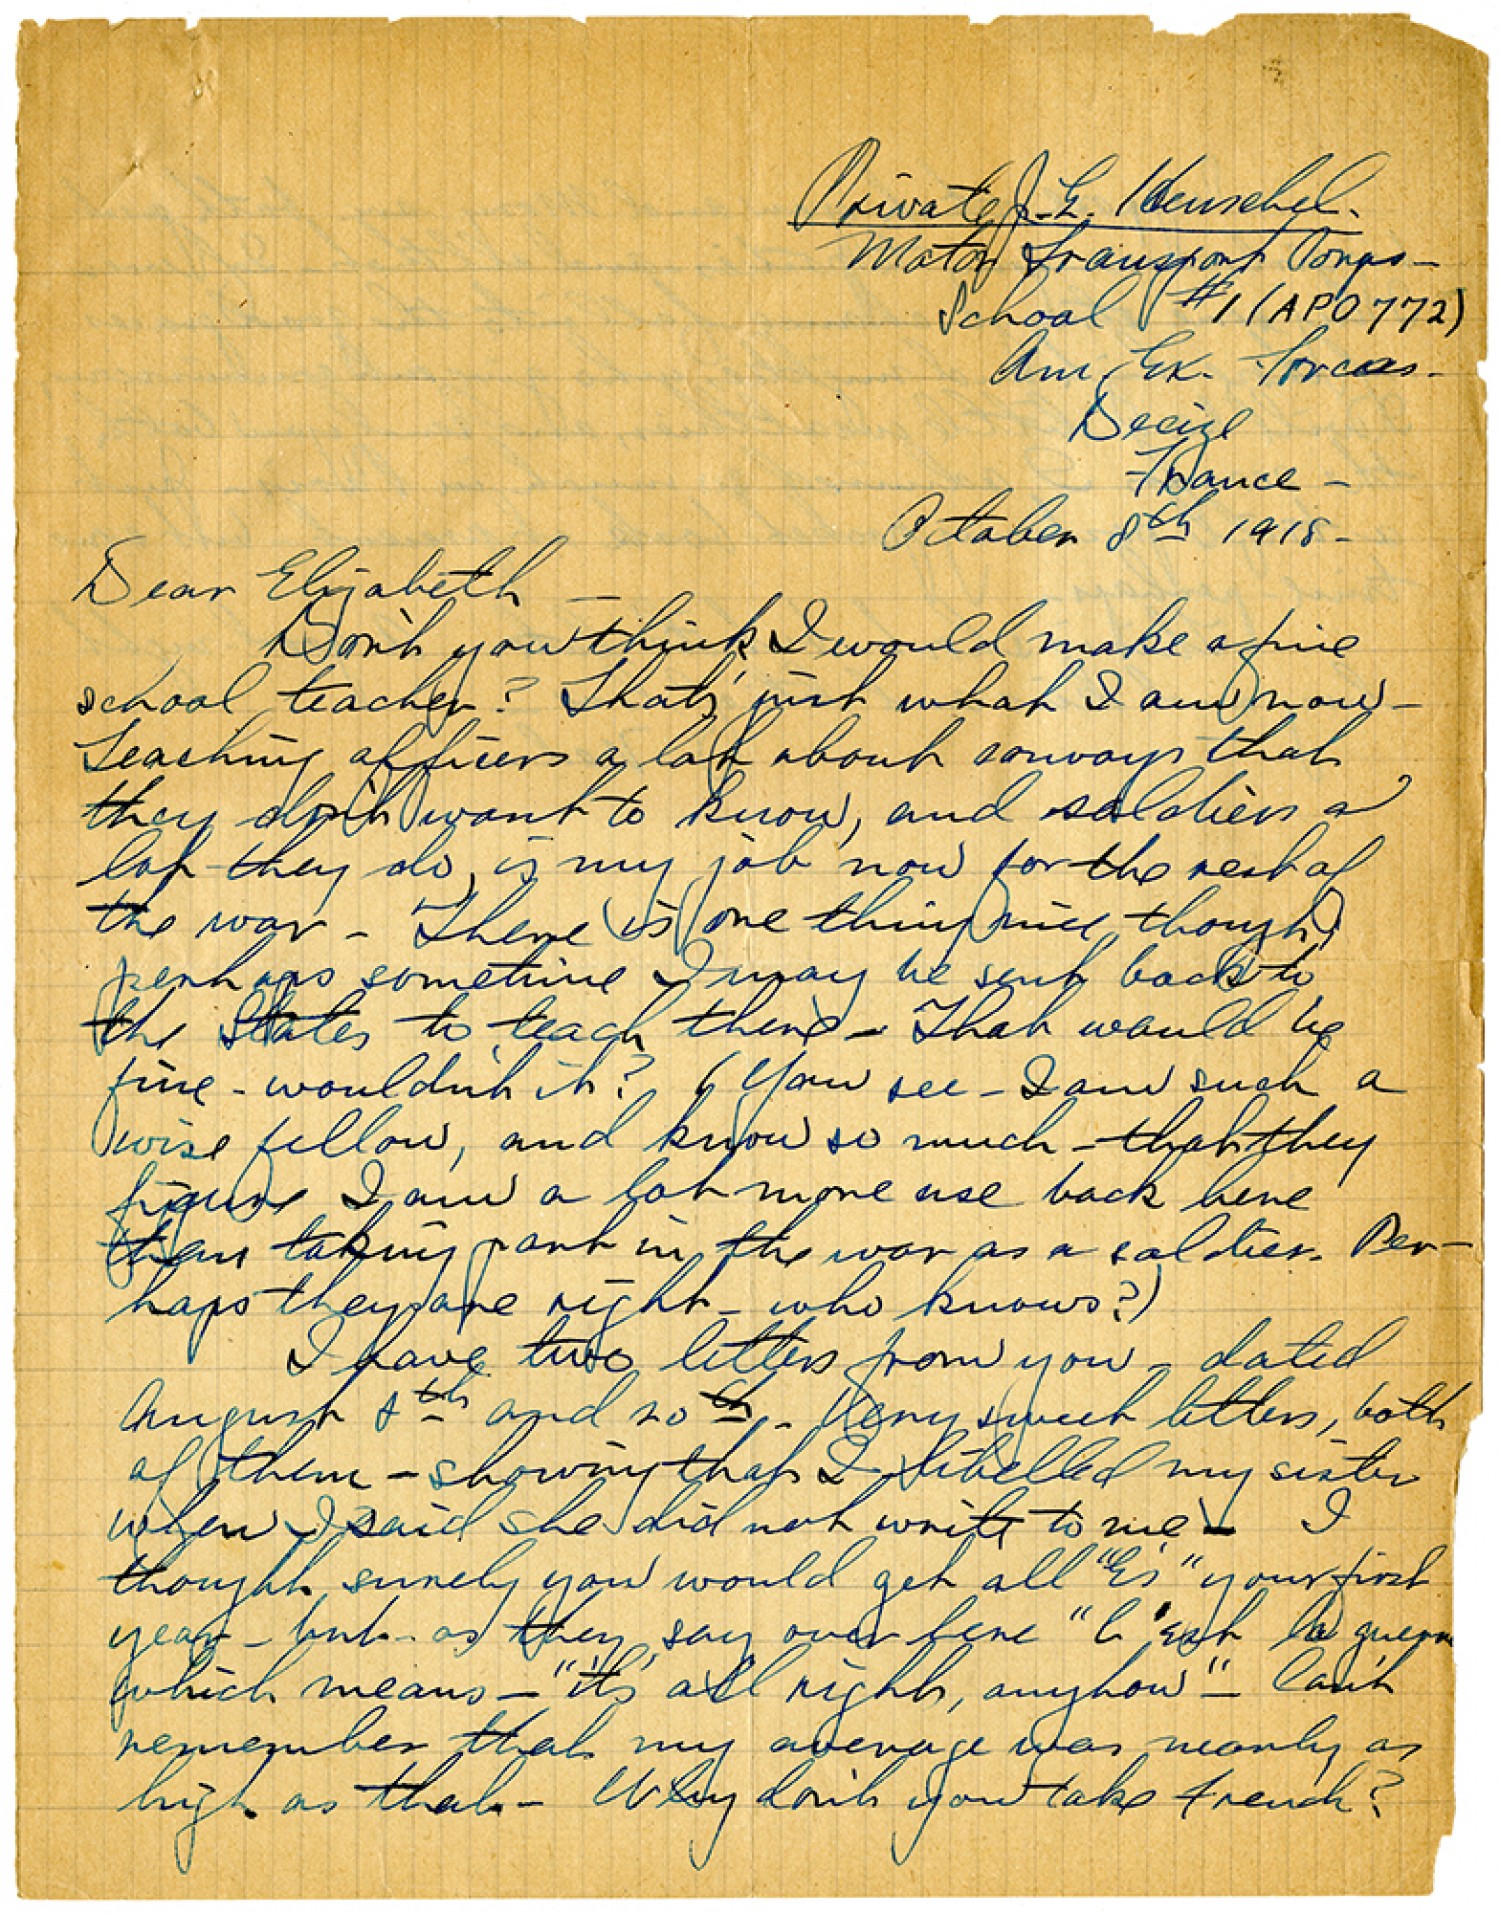 Private J. L. Henschel.
Motor Transport Corps -
School #1 (APO 772)
Am. Ex. Forces.
Decize
France -
October 8th 1918 -
Dear Elizabeth -
Don't you think I would make a fine
school teacher? That's just what I am now -
Teaching officers a lot about convoys that
they don't want to know, and soldiers a
lot they do, is my job now for the rest of
the war - There is one thing nice though,
perhaps sometime I may be sent back to
the States to teach there - That would be
fine - wouldn't it? (You see - I am such a
wise fellow, and know so much - that they
figure I am a lot more use back here
than taking part in the war as a soldier. Per-
haps they are right - who knows?)
I have two letters from you - dated
August 8th and 20th. - Very sweet letters, both
of them - showing that I libelled my sister
when I said she did not write to me - I
thought surely you would get all "E's" your first
year - but - as they say over here "C'est la guerre
which means - "it's all right, anyhow" - Can't
remember that my average was nearly as
high as that. - Why don't you take French?